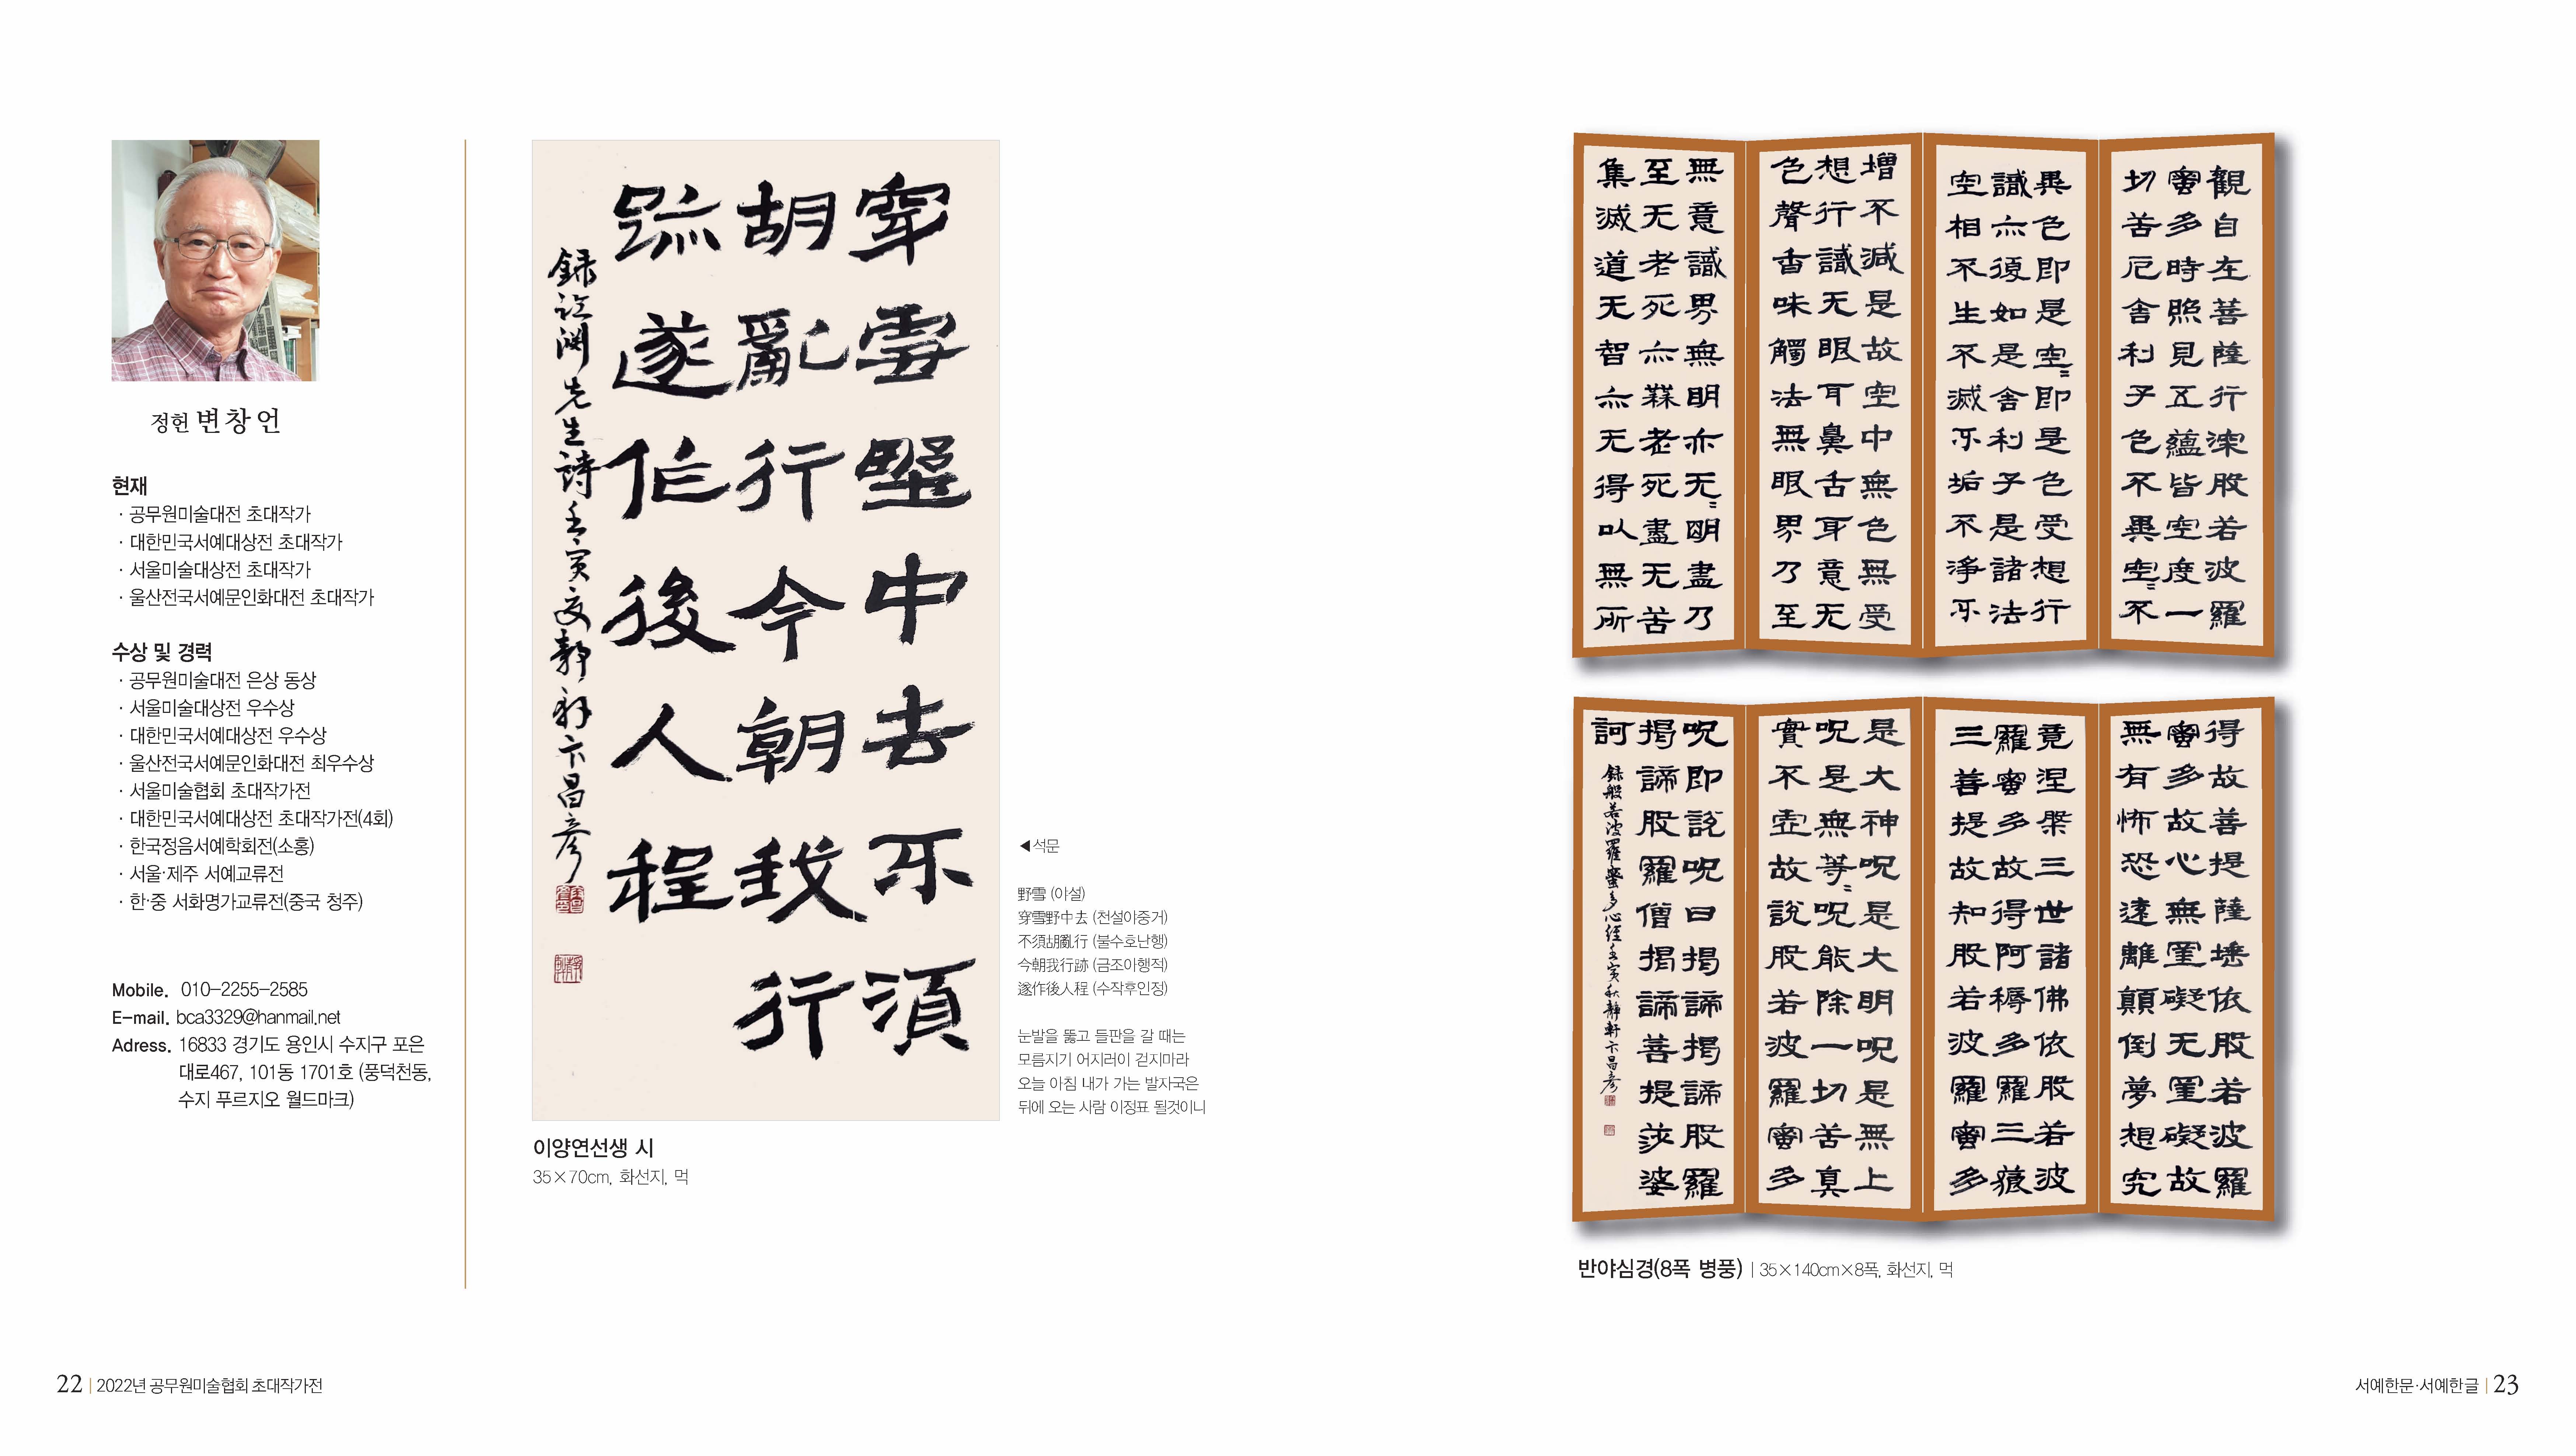 정헌 변창언
현재
· 공무원미술대전 초대작가
· 대한민국서예대상전 초대작가
· 서울미술대상전 초대작가
· 울산전국서예문인화대전 초대작가
수상 및 경력
· 공무원미술대전 은상 동상
· 서울미술대상전 우수상
· 대한민국서예대상전 우수상
· 울산전국서예문인화대전 최우수상
· 서울미술협회 초대작가전
· 대한민국서예대상전 초대작가전(4회)
· 한국정음서예학회전(소홍)
· 서울·제주 서예교류전
· 한·중 서화명가교류전(중국 청주)
Mobile. 010-2255-2585
E-mail. bca3329@hanmail.net
Adress. 16833 경기도 용인시 수지구 포은
대로467, 101동 1701호 (풍덕천동,
수지 푸르지오 월드마크)
穿雪野中去不須
胡亂行今朝我行
跡遂作後人程
錄臨淵先生詩壬寅夏靜軒卞昌彦
◀석문
野雪 (야설)
穿雪野中去 (천설야중거)
不須胡亂行 (불수호난행)
今朝我行跡 (금조아행적)
遂作後人程 (수작후인정)
눈발을 뚫고 들판을 갈 때는
모름지기 어지러이 걷지마라
오늘 아침 내가 가는 발자국은
뒤에 오는 사람 이정표 될것이니
이양연선생 시
35×70cm, 화선지, 먹
觀自在菩薩行深般若波羅
蜜多時照見五蘊皆空度一
切苦厄舍利子色不異空=不
異色即是空=即是色受想行
識亦復如是舍利子是諸法
空相不生不滅不垢不淨不
增不減是故空中無色無受
想行識无眼耳鼻舌身意无
色聲香味觸法無眼界乃至
無意識界無明亦无=明盡乃
至无老死亦無老死盡无苦
集滅道无智亦无得以無所
得故菩提薩埵依般若波羅
蜜多故心無罣礙无罣礙故
無有怖恐遠離顛倒夢想究
竟涅槃三世諸佛依般若波
羅蜜多故得阿耨多羅三藐
三菩提故知般若波羅蜜多
是大神呪是大明呪是無上
呪是無等=呪能除一切苦真
實不虛故說般若波羅蜜多
呪即說呪曰揭諦揭諦般羅
揭諦般羅僧揭諦菩提莎婆
訶
錄般若波羅蜜多心經壬寅秋靜軒卞昌彦
반야심경(8폭 병풍) | 35×140cm×8폭, 화선지, 먹
22 | 2022년 공무원미술협회 초대작가전
서예한문·서예한글 | 23